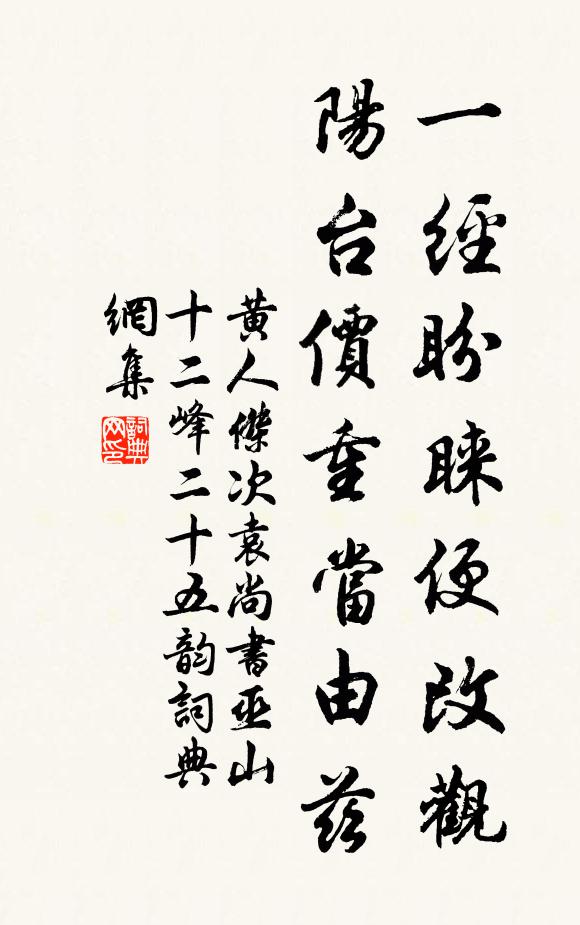 一經盼睞便改觀
陽台價重當由茲
黃人傑次袁尚書巫山
十二峰二十五韵詞典
網集
詞典
网印